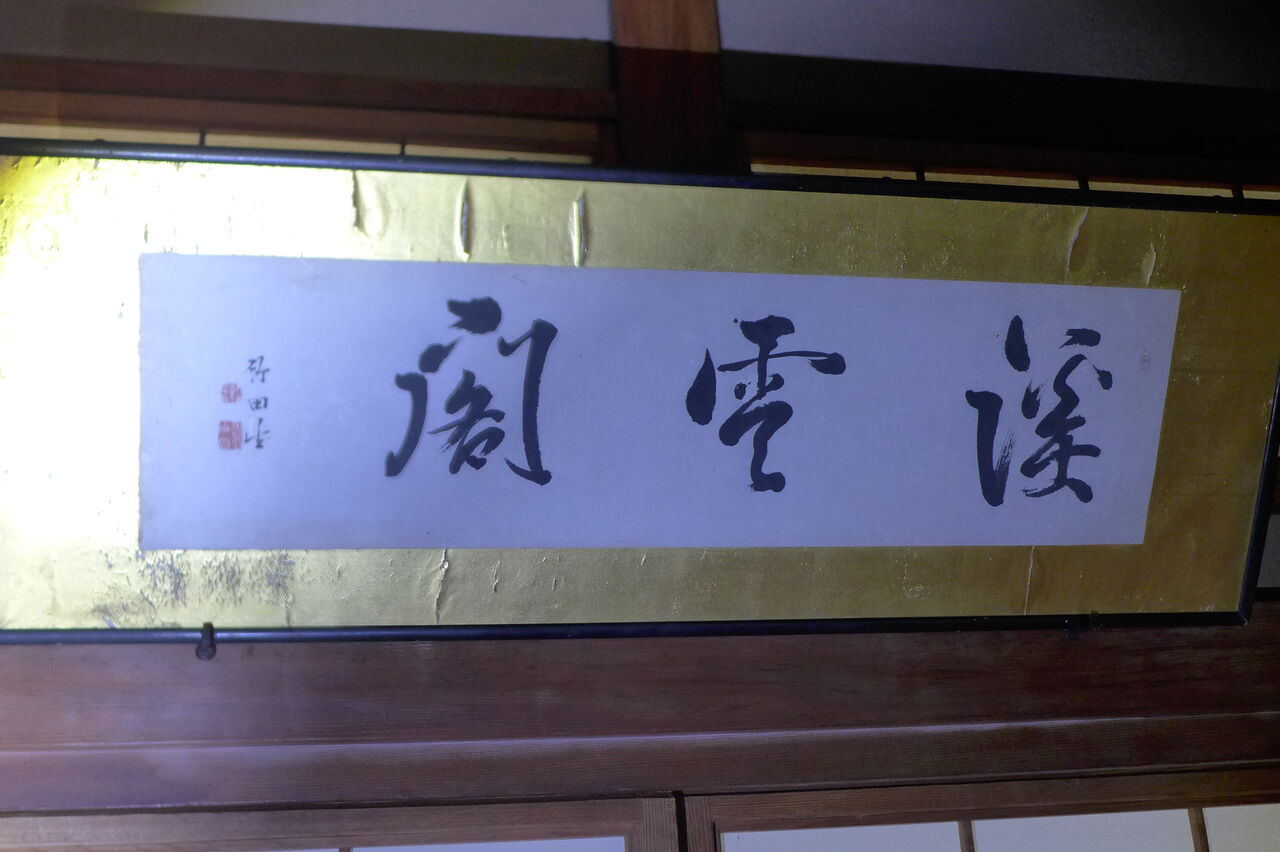 溪雲閣
竹田生